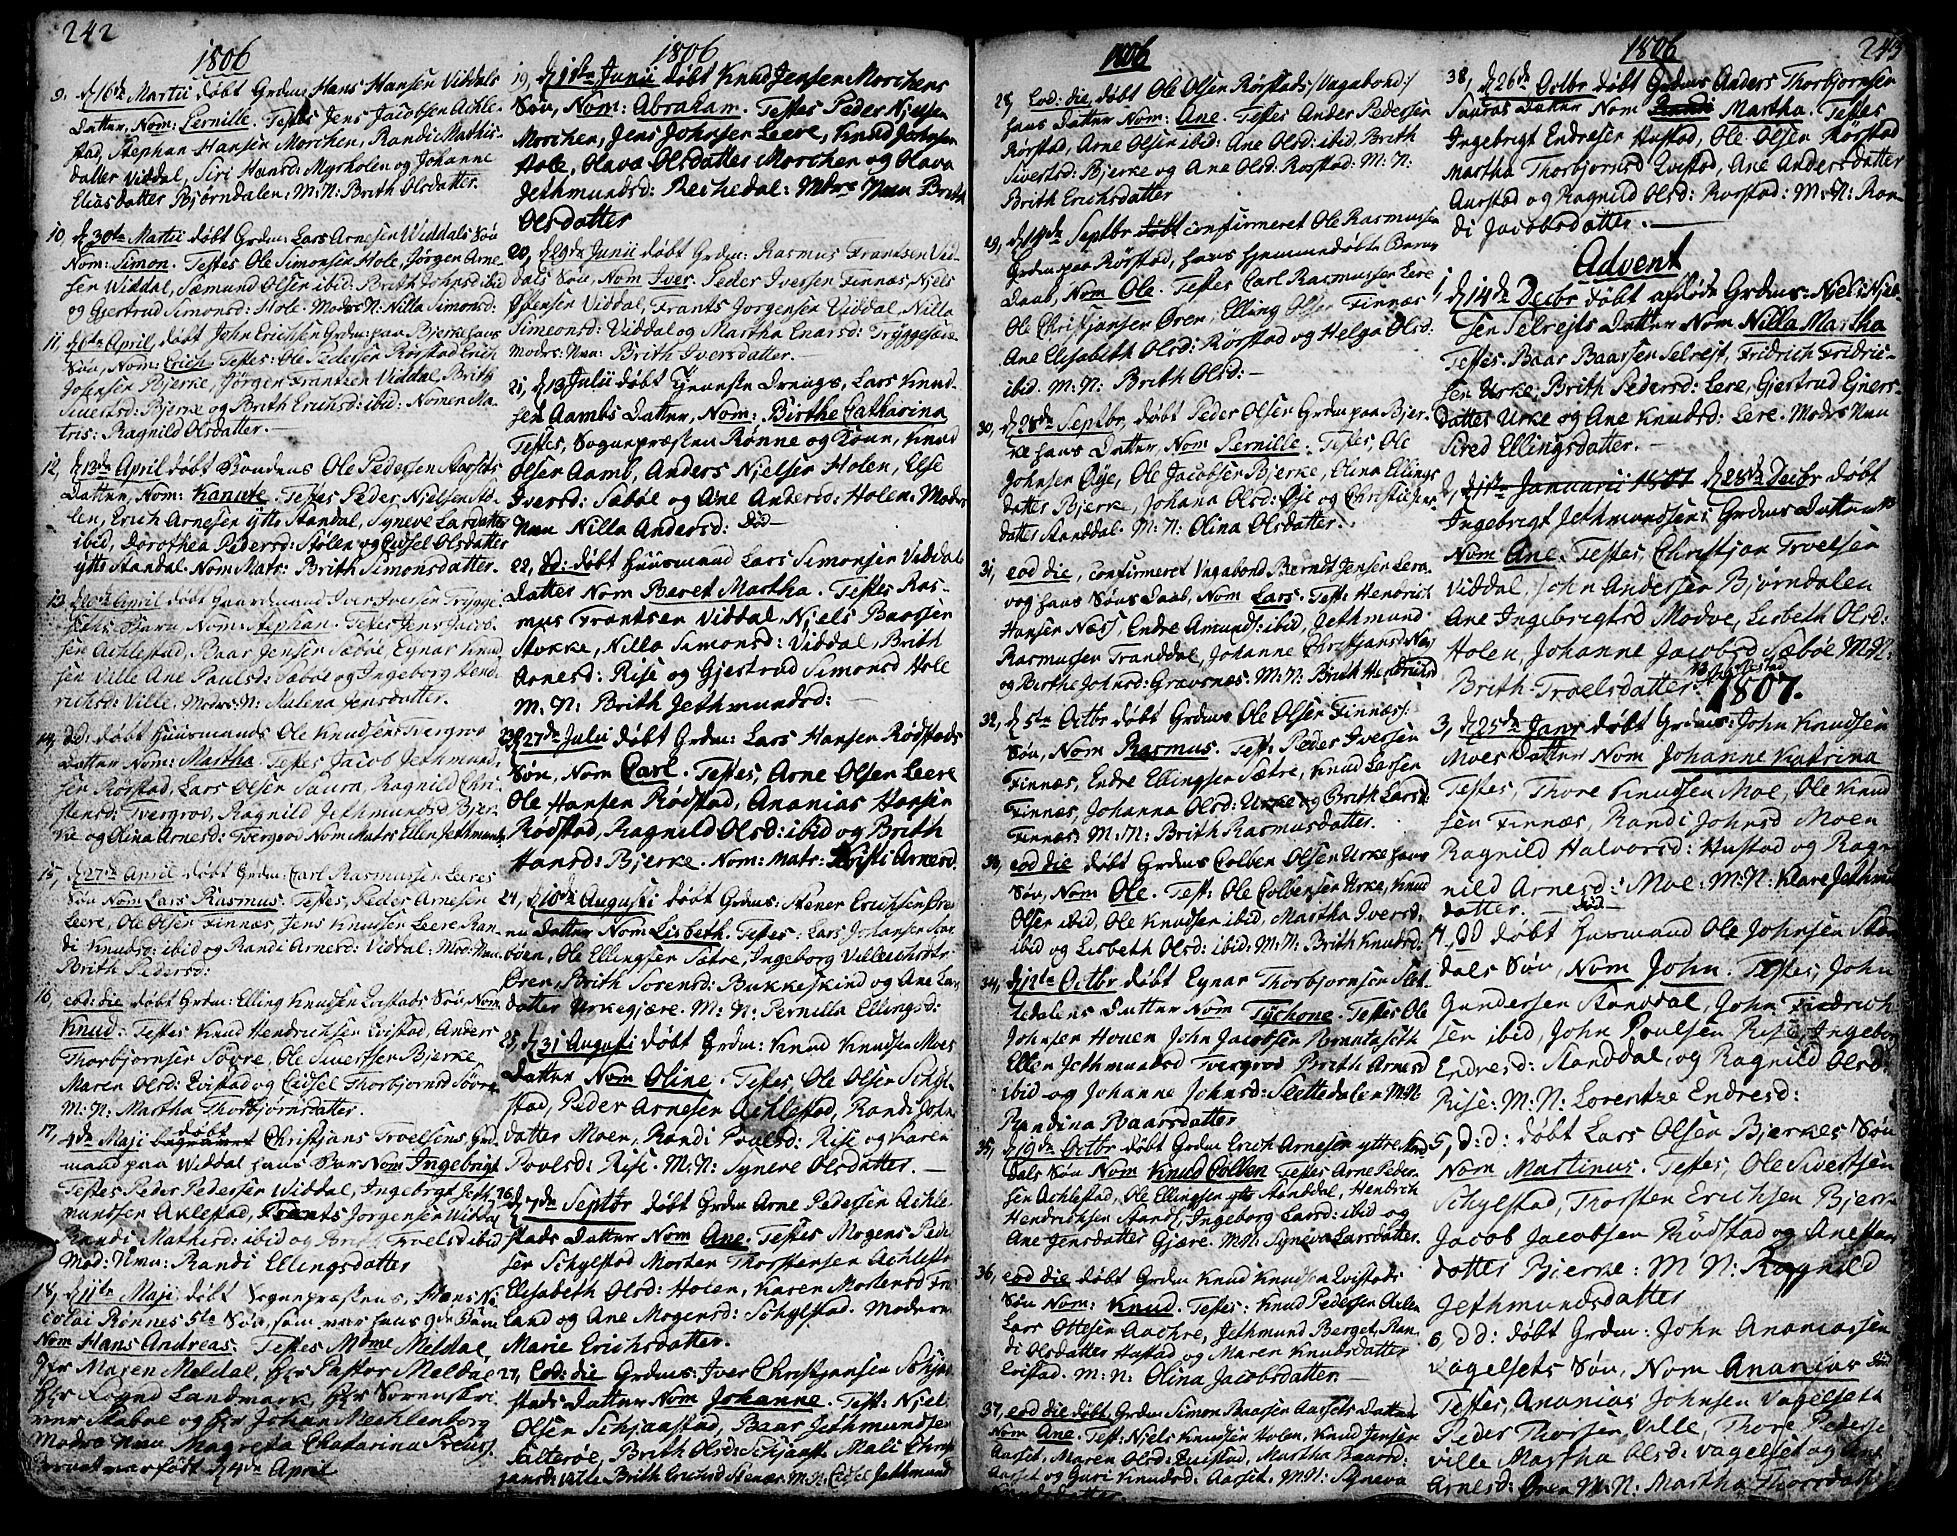 242
1806
9, d 16de Martii døbt Grdm: Hans Hansen Viddals
Datter, Nom: Pernille. Testes Jens Jacobsen Achle-
stad, Stephan Hansen Morchen, Randi Mathis-
datter Viddal, Siri Hansd: Myrholen og Johanne
Eliasdatter Bjørndalen, M: N: Brith Olsdatter.
10, d 30te Martii døbt Grdm: Lars Arnesen Widdals Søn
Nom: Simon. Testes Ole Simonsen Hole, Jørgen Arne
sen Widdal, Sæmund Olsen ibid: Brith Johnsd ibid
og Gjertrud Simonsd: Hole. Modrs N: Nilla Simonsd:
11, d 6te April, døbt John Erichsen Grdm: paa Bjerke hans
Søn, Nom: Erich. Testes: Ole Pedersen Rørstad Erich
Johnsen Bjerke, Jørgen Frantzen Viddal, Brith
Sivertsd: Bjerke og Brith Erichsd: ibid: Nomen Ma-
tris: Ragnild Olsdatter.
12, d 13de April døbt Bondens Ole Pedersen Aarsets
Datter, Nom: Kanute. Testes Peder Nielsen Stø-
len, Erich Arnesen ytte Standal, Syneve Larsdatter
ibid, Dorothea Pedersd: Stølen og Cidsel Olsdatter
ytte Standal. Nom Matr: Brith Simonsdatter.
13, d 20de April døbt Gaardmand Iver Iversen Trygge-
sæths Barn Nom: Stephan. Testes Jens Jacob-
sen Achlestad, Baar Jensen Sæbøe Eynar Knud
sen Ville Ane Paulsd: Sæbøe og Ingeborg Hend-
richsd: Ville, Modrs: N: Malena Jensdatter.
14, dd: døbt Huusmands Ole Knudsen Tvergrov
Datter Nom: Martha. Testes Jacob Jethmund,
sen Rørstad, Lars Olsen Saura, Ragnild Chri-
stensd: Tvergrov, Ragnild Jethmundsd Bjer-
ke og Olina Arnesd: Tvergrov Nom Matr: Ellen Jethmunds
15, d 27de April døbt Grdm: Carl Rasmussen Leeres
Søn Nom Lars Rasmus. Testes, Peder Arnesen
Leere, Ole Olsen Finnæs, Jens Knudsen Leere Ran-
di Knudsd: ibid og Randi Arnesd: Viddal: Mod: Nun
Brith Pedersd:
16, eod: die døbt Grdm: Elling Knudsen Qvistads Søn, Nom
Knud: Testes Knud Hendrichsen Qvistad, Anders
Thorbjornsen Søvre, Ole Sivertsen Bjerke
Maren Olsd: Qvistad og Cidsel Thorbjornsd Søvre
M: N: Martha Thorbjornsdatter.
17, 4de Maji døbt Christjans Troelsens Grd
mand paa Widdal hans Barn Nom Ingebrigt
Testes Peder Pedersen Widdal, Ingebrgt Jeth
mundsen Axlestad, Frants Jorgensen Widdal
Randi Mathisd: ibid og Troelsd ibid
Mod: Namn: Randi Ellingsdatter
18, d 11te Maji døbt Sognepræstens, Hans Ni
colai Rønnes 5te Søn, som var hans 9de Barn
Nom Hans Andreas. Testes Mdme Meldal,
Jfr Maren Meldal, Hr Pastor Meldal
Hr Lound Landmark, Hr Sorenskri
ver Staboe og Hr Johan Mechlenborg
Modrs Nun Magreta Chatarina Preus.
Barnet var født d 4de April
1806
19, d 11te Junii døbt Knud Jensen Morchens
Søn, Nom: Abraham. Testes Peder Nielsen
Morchen, Jens Johnsen Leere, Knud Johnsen
Hole, Olava Olsdatter Morchen og Olava
Jethmundsd: Rechedal: Mdrs Nun Brith
Olsdatter
20, d 29de Junii døbt Grdm: Rasmus Frantsen Vid-
dals Søn, Nom Iver. Peder Iversen Finnæs, Niels
Jensen Viddal, Frants Jorgensen Viddal, Nilla
Simeonsd: Viddal og Martha Enarsd: Tryggesæt
Modrs: Nun: Brith Iversdatter.
21, d 13 Julii døbt Tjeneste Drengs, Lars Knud-
sen Aambs Datter, Nom: Birthe Catharina
Testes, Sognepræsten Rønne og Kone, Knud
Olsen Aamb, Anders Nielsen Holen, Else
Iversd: Sæbøe og Ane Andersd: Holen: Modrs
Nun Nilla Andersd:
22, Dd: døbt Huusmand Lars Simonsen Viddals
Datter Nom Beret Martha. Testes Ras-
mus Frantsen Viddal, Niels Baarsen
Stokke, Nilla Simonsd: Viddal, Brith
Arnesd: Rise og Gjertrud Simonsd Hole
M: N: Brith Jethmundsd:
23, d 27de Julii døbt Grdm: Lars Hansen Rødstads
Søn, Nom Carl. Testes, Arne Olsen Leere
Ole Hansen Rødstad, Ananias Hansen
Rødstad, Ragnild Olsd: ibid og Brith
Hansd: Bjerke. Nom: Matr: Kristi Arnesd.
24, d 10de Augusti døbt Grdms: Stener Erichsen Øre
ns Datter Nom Lisbeth. Testes: Lars Johansen
bøen, Ole Ellingsen Sætre, Ingeborg Villeichsdtr:
Ören, Brith Sorensd: Bukkeskind og Ane Lars
datter Urkegjære. M: N: Pernilla Ellingsd:
25, d 31 Augusti døbt Grdm: Knud Knudsen Moes
Datter Nom Oline. Testes, Ole Olsen Schjel-
stad, Peder Arnesen Achlestad, Randi John
datter Moen, Randi Povlsd: Rise og Karen
Povlsd: Rise. M: N: Synere Olsdatter.
26, d 7de Septbr døbt Grdm Arne Pedersen Achle-
stads Datter Nom Ane. Testes Mogens Peder
sen Schylstad Morten Thorstensen Achlestad
Elisabeth Olsd: Holen, Karen Mortensd
land og Ane Mogensd: Schylstad. Moderns
Marie Erichsdatter.
27, Eod: die døbt Grdms: Iver Christjansen Schjaa-
stads Datter Nom Johanne. Test: Niels
Olsen Schjaastad, Baar Jethmundsen
Salterøe, Brith Olsd: Schjaast: Mali Chrst
jansd: Ville Brith Erichsd Stenæs, M: N: Cidsel Jethmund
1806
28, Eod: die, døbt Ole Olsen Rørstad /: Vagabond :/
hans Datter Nom: Ane. Testes Ander Pedersen
Rørstad, Arne Olsen ibid: Ane Olsd: ibid, Brith
Sivertsd: Bjerke og Ane Olsd: Rørstad: M: N:
Brith Erichsdatter
29, d 14de Septbr confirmeret Ole Rasmussen
Grdm paa Rørstad, hans hjemmedøbte Barns
Daab, Nom Ole. Testes Carl Rasmussen Leere
Ole Christjansen Øren, Elling Olsen Finnæs
Ane Elisabeth Olsd: Rørstad og Helga Olsd:
ibid. M: N: Brith Olsd:
30, d 28de Septbr, døbt Peder Olsen Grdm paa Bjer-
ke hans Datter, Nom Pernille. Testes, Ole
Johnsen Øije, Ole Jacobsen Bjerke, Olina Ellings
datter Bjerke, Johana Olsd: Øje og Christie
datter Standdal. M: N: Olina Olsdatter.
31, eod die, confirmeret Vagabond Berndt Jensen Lera-
vog hans Søns Daab, Nom Lars. Test: Hendrich
Hansen Næss, Endre Amunds: ibid, Jethmund
Rasmussen Tranddal, Johanne Christjansd Næs
og Berthe Johnsd: Gravsnes. M: N: Brith Henrichsd
32, d 5te Octbr døbt Grdms Ole Olsen Finnæss.
Søn, Nom Rasmus. Test: Peder Iversen
Finnæs, Endre Ellingsen Sætre, Knud Larsen
Finnes, Johanna Olsd: Urke og Brith Larsd:
Finnæs. M: N: Brith Rasmusdatter.
33, eod die døbt Grdms Colben Olsen Urke hans
Søn, Nom Ole. Test: Ole Colbensen Urke, Knud
Olsen ibid, Ole Knudsen ibid, Martha Iversd:
ibid og Lisbeth Olsd: ibid: M: N: Brith Knudsd:
34, d 12te Octbr døbt Eynar Thorbjornsen Slet-
tedalens Datter Nom Tychone. Testes Ole
Johnsen Hoven John Jacobsen Romutsæth
Ellen Jethmundsd Tvergrov Brith Arnesd
ibid og Johanne Johnsd: Slettedalen M: N:
Randina Baarsdatter
35, d 19de Octbr døbt Grdm Erich Arnesen yttre Stand
dals Søn Nom Knud Colben Testes Arne Peder
sen Achlestad, Ole Ellingsen ytte Standdal, Hendrich
Hendrichsen Stand, Ingeborg Larsd: ibid og
Ane Jensdatter Gjære. M: N: Syneva Larsdatter.
36, eod die døbt Grdm Knud Knudsen Qvistads
Søn Nom: Knud. Testes: Knud Pedersen Axlen
Lars Ottesen Aachre, Jethmund Berget, Ran-
di Olsdatter Hustad og Maren Knudsdatter
Qvistad. M: N: Olina Jacobsdatter.
37, eod die døbt Grdm Simon Baarsen Aarsets Datter
Nom Ane. Test: Niels Knudsen Holen, Knud Jensen
Aarset, Maren Olsd: Qvistad, Martha Baarsd:
Aarset og Guri Knudsd: Aarset. M: N: Syneva
1806
243
38, d 26de Octbr døbt Grdms Anders Thorbjornsen
Sauras Datter Nom Martha. Testes
Ingebrigt Endresen Hustad, Ole Olsen Rørstad
Martha Thorbjornsd Qvistad, Ane Andersdatter
Aurstad og Ragnild Olsd: Rorstad: M: N: Ran-
di Jacobsdatter.
Advent
1, d 14de Decbr døbt afdøde Grdms: Njels Niel-
sen Selvejts Datter Nom Nilla Martha
Testes. Baar Baarsen Selvejt, Fridrich Fridric-
sen Urke, Brith Pedersd: Leere, Gjertrud Ejners-
datter Urke og Ane Knudsd: Leere. Modrs Nun
Sired Ellingsdatter.
2, d 1te Januarii 1807 d 28de Decbr døbt
Ingebrigt Jethmundsens Grdms Datter
Nom Ane. Testes, Christjan Troelsen
Viddal, John Andersen Bjørndalen
Ane Ingebrigtsd Modve, Lisbeth Olsd:
Holen, Johanne Jacobsd Sæbøe M: N:
Brith Troelsdatter.
1807.
3, d 25de Janr døbt Grdms: John Knudsen
Moes Datter Nom Johanne Katrina
Testes, Thore Knudsen Moe, Ole Knud
sen Finnæs, Randi Johnsd Moen
Ragnild Halvorsd: Hustad og Rag
nild Arnesd: Moe: M: N: Klare Jethmunds
datter.
4, DD døbt Husmand Ole Johnsen Stan
dals Søn, Nom John. Testes, John
Gundersen Standal, John Friedrich
sen ibid, John Poulsen Rise, Ingeborg
Endresd: Standdal, og Ragnild Olsd:
Rise: M: N: Lorentze Endresd:
5, D: d: døbt Lars Olsen Bjerkes Søn
Nom Martinus. Testes, Ole Sivertsen
Schylstad, Thorsten Erichsen Bjerke
Jacob Jacobsen Rødstad og Ane
datter Bjerke: M: N: Ragnild
Jethmundsdatter
6, D d: døbt Grdm: John Ananiassen
Vagelsets Søn, Nom Ananias
Testes, Ananias Johnsen Vagelseth
Peder Thorsen Ville, Thore Pederse
ville Martha Olsd: Vagelset og Ane
Arnesd: Øren M: N: Martha Thorsdatter